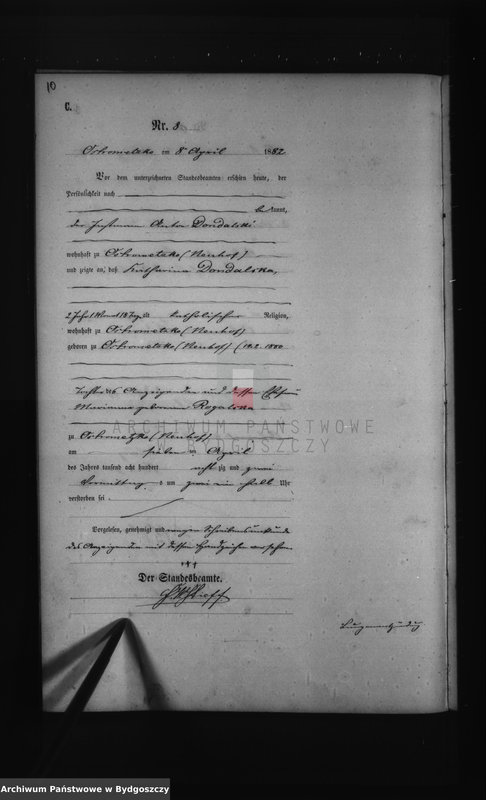 10
C.
Nr. 8
Ostrometzko am 8 April 1882
Vor dem unterzeichneten Standesbeamten erschien heute, der
Persönlichkeit nach
bekannt,
der Instmann Anton Dondalski
wohnhaft zu Ostrometzko (Neuhof)
und zeigte an, daß Katharina Dondalska,
2 Jahr 1 Monat 18 Tage alt katholischer Religion,
wohnhaft zu Ostrometzko (Neuhof)
geboren zu Ostrometzko (Neuhof) 1880
Tochter des Anzeigenden und dessen Ehefrau
Marianna geborenen Rogalska
ARCHIWUM PAŃSTWOWE
W BYDGOSZCZY
zu Ostrometzko (Neuhof)
am sieben ten April
des Jahres tausend acht hundert achtzig und zwei
Vormittags um zwei ein halb Uhr
verstorben sei
Vorgelesen, genehmigt und wegen Schreibensunkunde
des Anzeigenden mit dessen Handzeichen versehen.
+++
Der Standesbeamte.
Archiwum Państwowe w Bydgoszczy